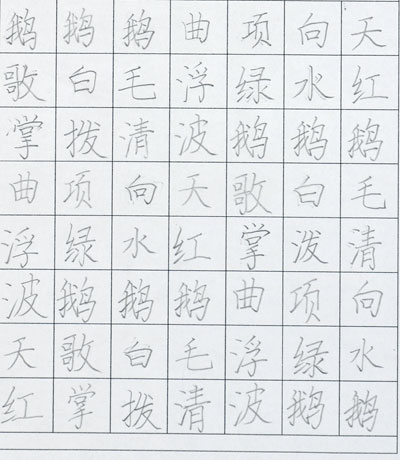 鹅鹅鹅曲项向天
歌白毛浮绿水红
掌拨清波鹅鹅鹅
曲项向天歌白毛
浮绿水红掌泼清
波鹅鹅鹅曲项向
天歌白毛浮绿水
红掌拨清波鹅鹅